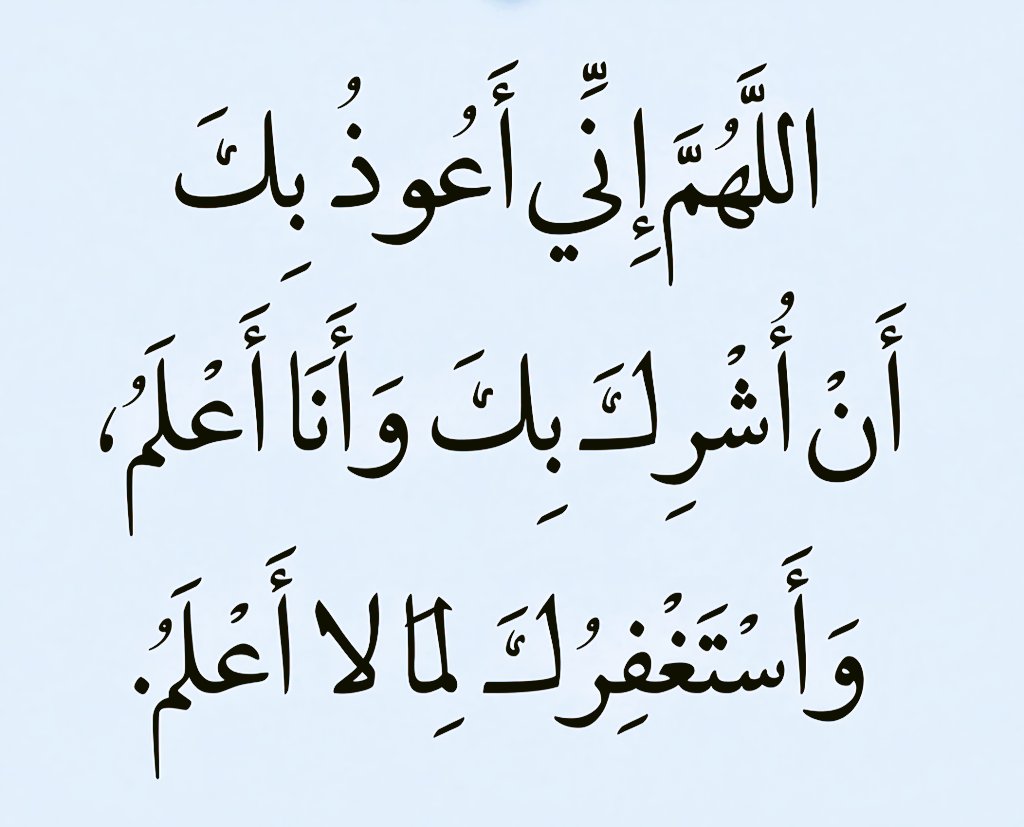 اللَّهُمَّ إِنِّي أَعُوذُ بِكَ
أَنْ أُشْرِكَ بِكَ وَأَنَا أَعْلَمُ،
وَأَسْتَغْفِرُكَ لِمَا لا أَعْلَمُ.